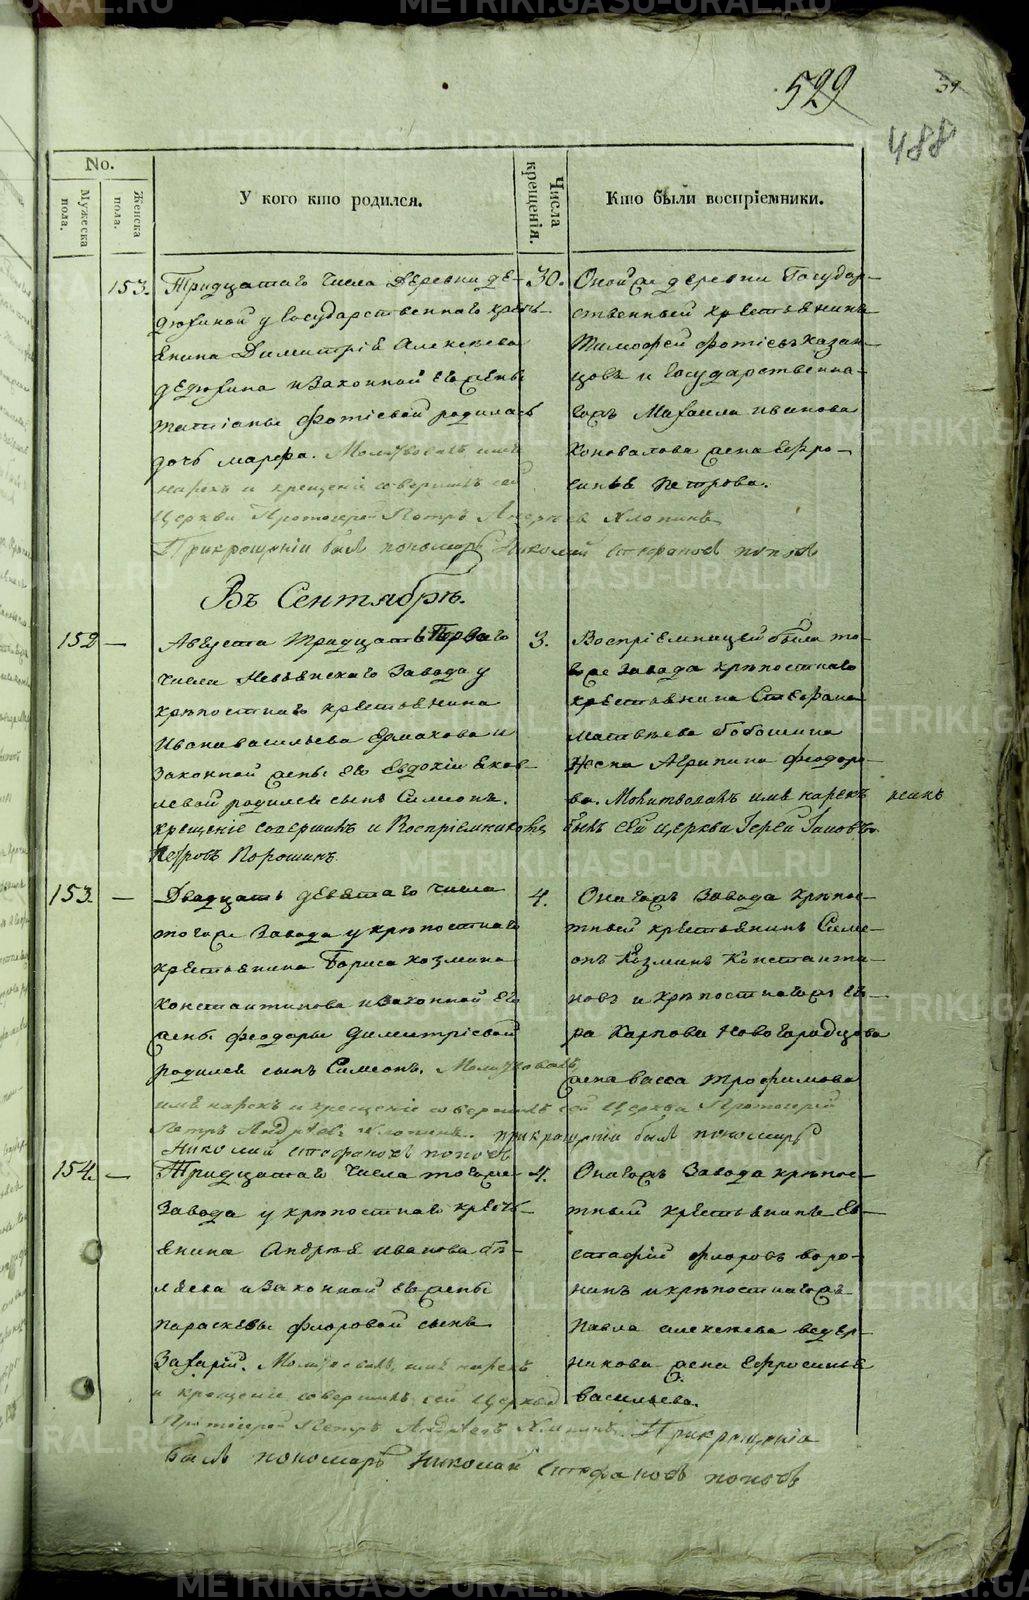 529
39
488
No.
Мужеска пола.
Женска пола.
У кого кто родился.
Числа крещенія.
Кто были воспріемники.
153. Тридцатаго числа Деревни Де-
дюхиной у Государственнаго кресть-
янина Димитрія Алексѣева
Дедюхина и Законной его жены
Татіаны Фотіевой родилась
дочь Марфа. Молитвовалъ имя
нарекъ и крещеніе совершилъ сей
Церкви Протоіерей Петръ Андреевъ Хлопинъ
При крещеніи былъ пономарь Николай Стефановъ Поповъ
30.
Оной же деревни Государ-
ственный крестьянинъ
Тимофей Фотіевъ Казан-
цовъ и Государственна-
гожъ Михаила Иванова
Коновалова жена Ефро-
синья Петрова.
Въ Сентябрѣ.
152 — Августа Тридцать Перваго
числа Невьянскаго Завода у
крѣпостнаго крестьянина
Ивана Васильева Ермакова и
Законной жены его Евдокіи Яков-
левой родился сынъ Симеонъ.
3.
Воспріемницей была то-
гоже Завода крѣпостнаго
крестьянина Стефана
Матвѣева Бобошина
Жена Агрипина Феодоро-
ва. Молитвовалъ имя нарекъ
крещеніе совершилъ и Воспріемникомъ былъ сей церкви Іерей Іаковъ
Петровъ Порошинъ.
153. — Двадцать девятаго числа
тогоже Завода у крѣпостнаго
крестьянина Бориса Козмина
Константинова и Законной его
жены Феодоры Димитріевой
родился сынъ Симеонъ. Молитвовалъ
имя нарекъ и крещеніе совершилъ сей Церкви Протоіерей
Петръ Андреевъ Хлопинъ. При крещеніи былъ пономарь
Николай Стефановъ Поповъ
4.
Онагожъ Завода Крѣпос-
тный крестьянинъ Симе-
онъ Козминъ Константи-
новъ и крѣпостнагожъ
Карпова Новогородцова
жена Васса Трофимова
154. — Тридцатаго числа тогоже
Завода у крѣпостнаго кресть-
янина Андрея Иванова Бѣ-
ляева и Законной его жены
Параскевы Флоровой сынъ
Захарій. Молитвовалъ, имя нарекъ
и крещеніе совершилъ сей Церкви
Протоіерей Петръ Андреевъ Хлопинъ. При крещеніи
былъ пономарь Николай Стефановъ Поповъ
4.
Онагожъ Завода крѣпос-
тный крестьянинъ Ев-
стафій Флоровъ Воро-
нинъ и крѣпостнагожъ
Павла Алексѣева Ведер-
никова жена Ефросинья
Васильева.
METRIKI.GASO-URAL.RU